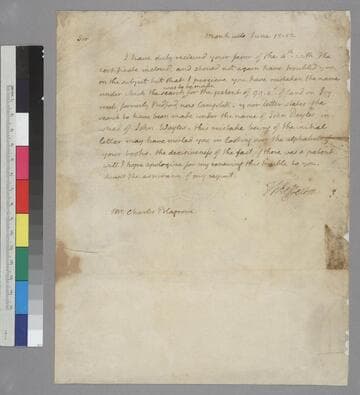 Sir
Monticello June 12. 12
I have duly recieved your favor of the 4th with the
certificate inclosed, and should not again have troubled you
on the subject but that I percieve you have mistaken the name
was to be made
under which the search for the patent of 99. as. of land on Ivy
creek formerly Bedford now Campbell. your letter states the
search to have been made under the name of John Dayles in
stead of John Wayles. this mistake being of the initial
letter may have misled you in looking over the alphabets of
your books. the decisiveness of the fact if there was a patent
will I hope apologise for my renewing this trouble to you.
Accept the assurance of my respect.
Th: Jefferson
Mr. Charles Blagrove